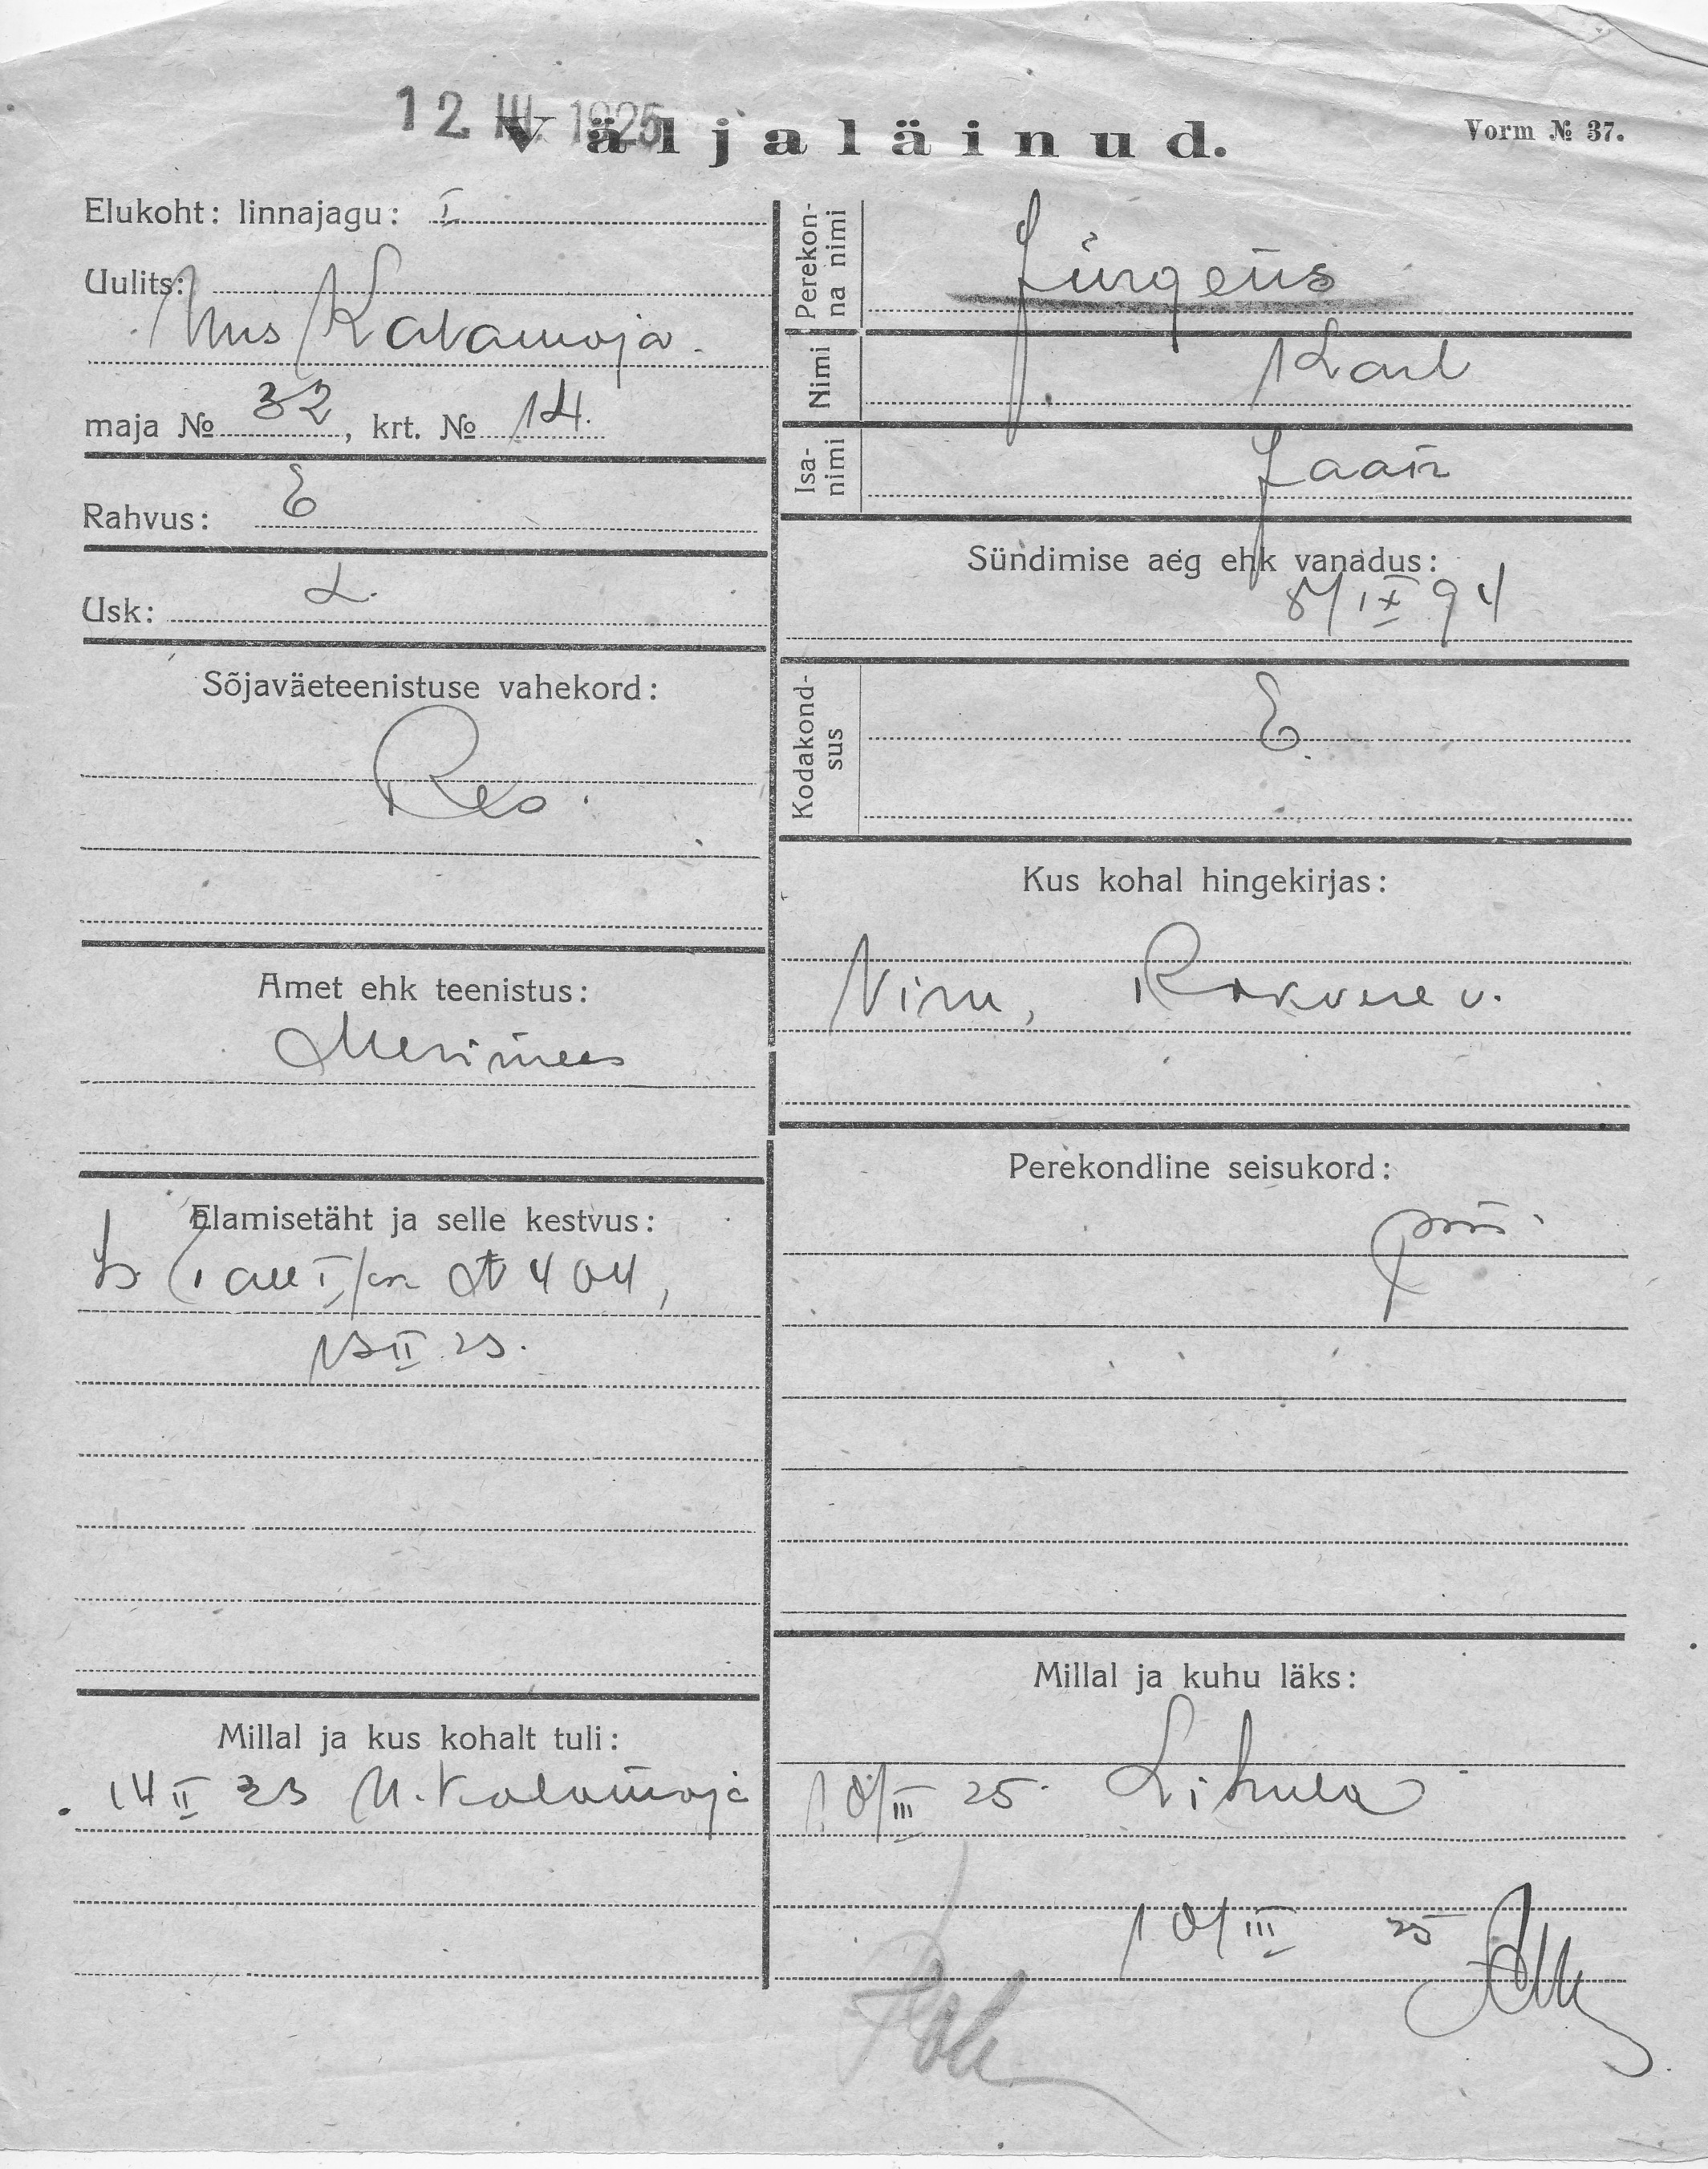 12 III 1925
Väljaläinud.
Vorm № 37.
Elukoht: linnajagu: I
Uulits:
Uus Kalamaja
maja № 32, krt. № 14.
Rahvus: E
Usk: L.
Sõjaväeteenistuse vahekord:
Res.
Amet ehk teenistus:
Merimees
Elamisetäht ja selle kestvus:
404,
13 II 23.
Millal ja kus kohalt tuli:
14 II 23 U. Kalamaja
Perekonna nimi
Jürgens
Nimi
Karl
Isanimi
Jaan
Sündimise aeg ehk vanadus:
8/IX 94
Kodakondsus
E.
Kus kohal hingekirjas:
Viru, Rakvere v.
Perekondline seisukord:
Millal ja kuhu läks:
10/III 25. Lihula
10/III 25